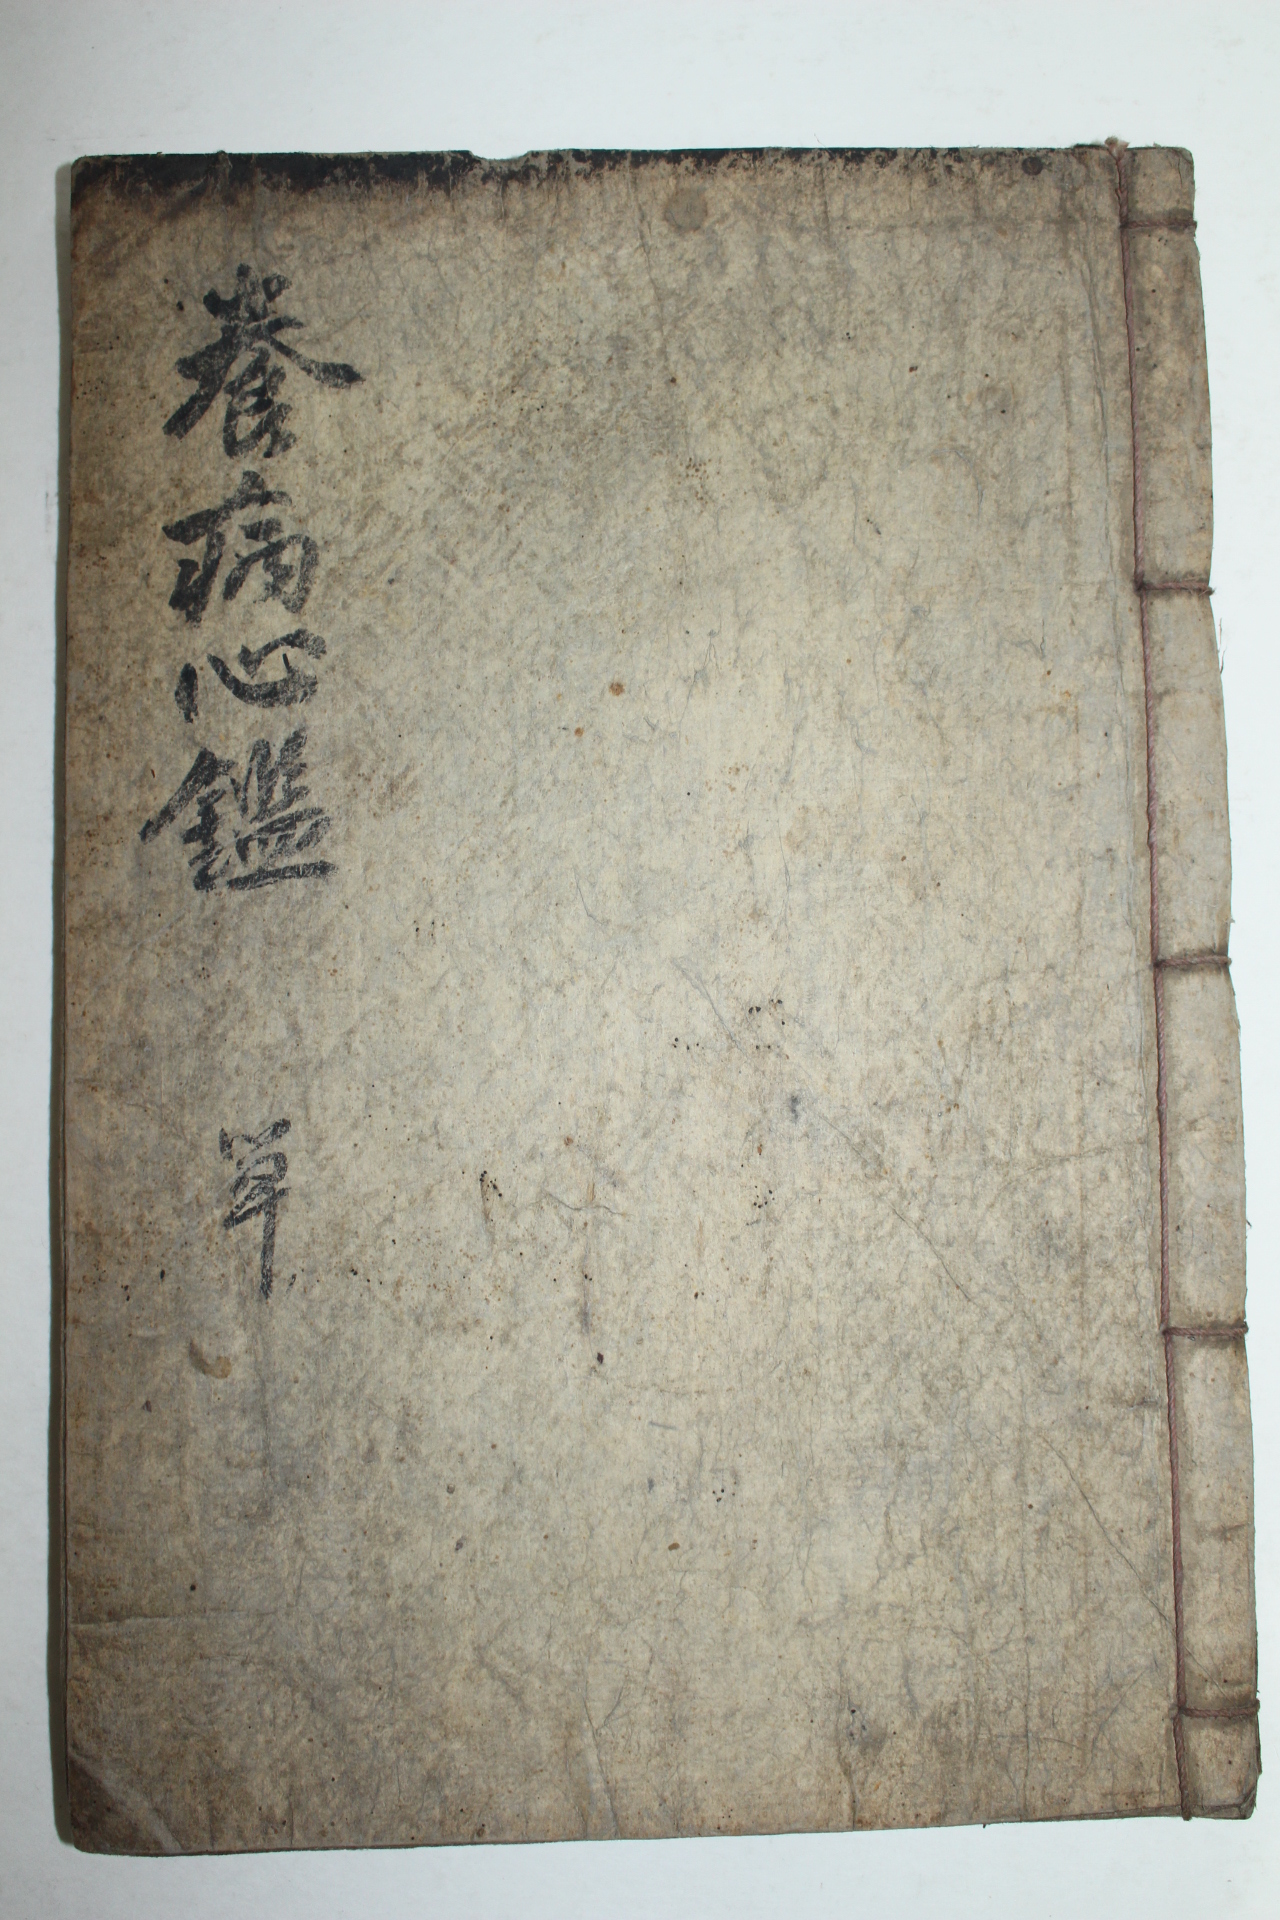 養病心鑑
單